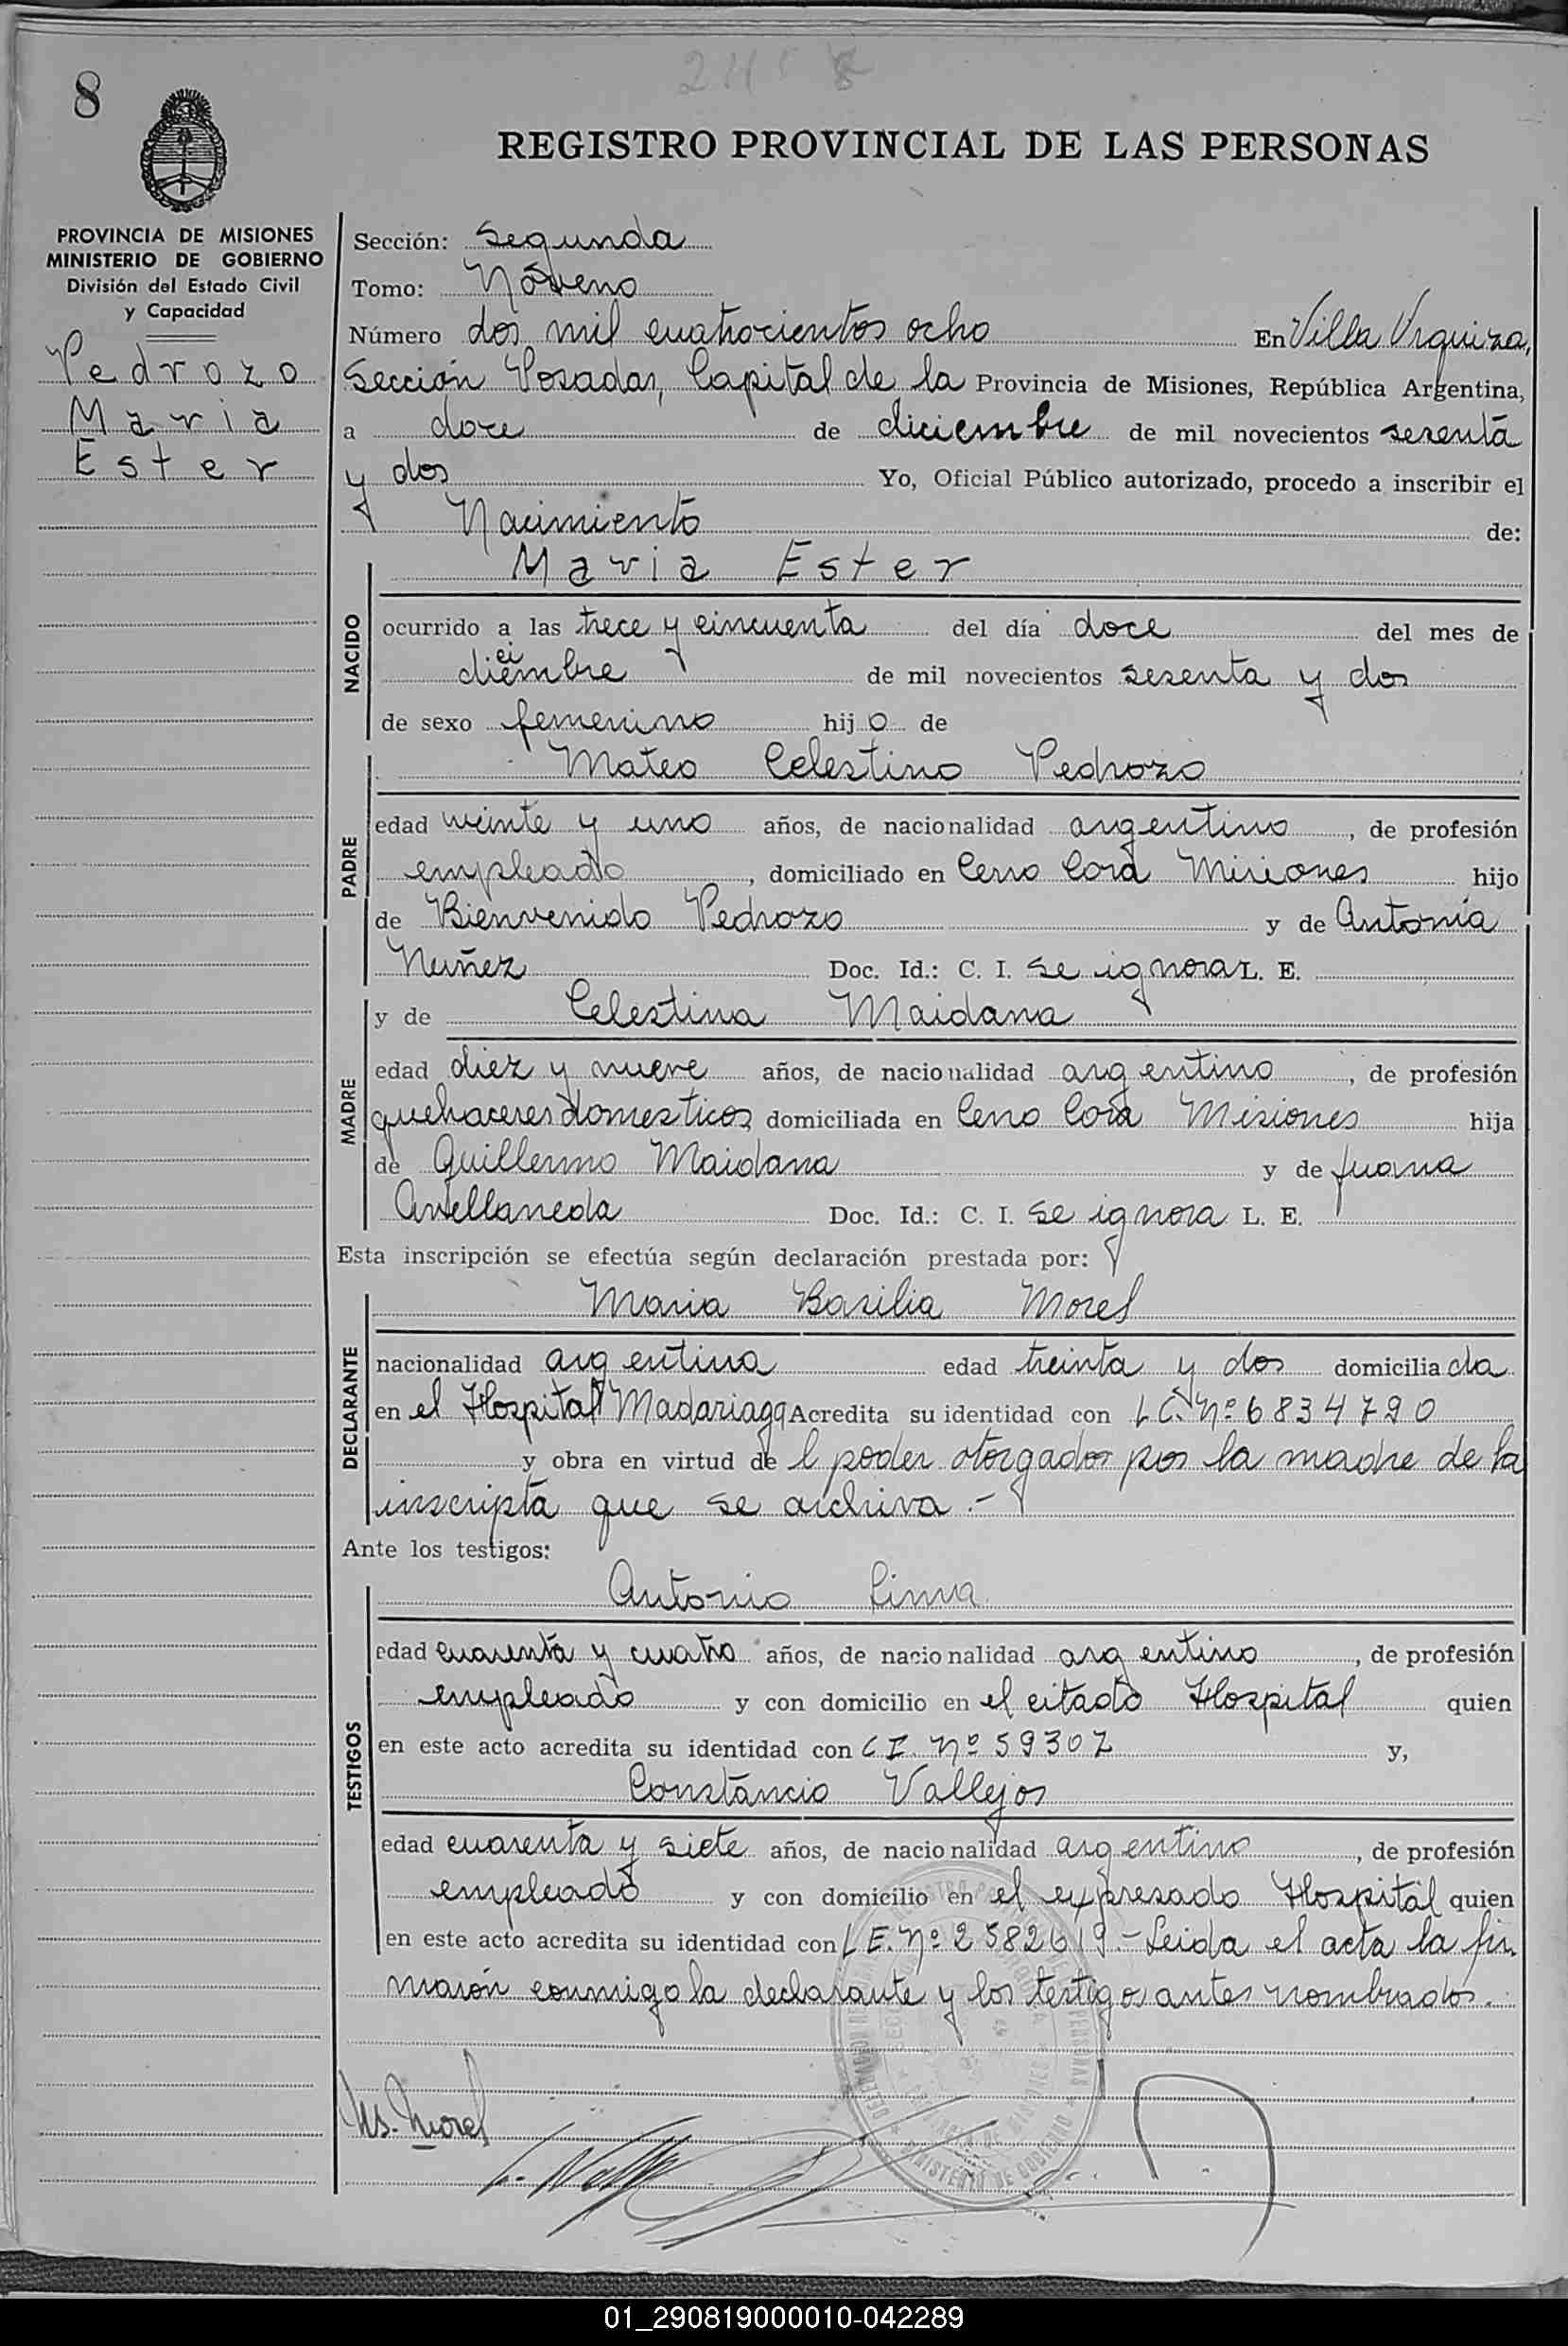 8
REGISTRO PROVINCIAL DE LAS PERSONAS
PROVINCIA DE MISIONES
MINISTERIO DE GOBIERNO
División del Estado Civil
y Capacidad
Pedrozo
Maria
Ester
Sección: Segunda
Tomo: Noveno
Número dos mil cuatrocientos ocho En Villa Urquiza,
Sección Posadas, Capital de la Provincia de Misiones, República Argentina,
a doce de diciembre de mil novecientos sesenta
y dos Yo, Oficial Público autorizado, procedo a inscribir el
Nacimiento de:
Maria Ester
NACIDO
ocurrido a las trece y cincuenta del día doce del mes de
diciembre de mil novecientos sesenta y dos
de sexo femenino hijo de
Mateo Celestino Pedrozo
PADRE
edad veinte y uno años, de nacionalidad argentino, de profesión
empleado, domiciliado en Cerro Corá Misiones hijo
de Bienvenido Pedrozo y de Antonia
Nuñez Doc. Id.: C. I. se ignora L. E.
y de Celestina Maidana
MADRE
edad diez y nueve años, de nacionalidad argentino, de profesión
quehaceres domesticos domiciliada en Cerro Corá Misiones hija
de Guillermo Maidana y de Juana
Avellaneda Doc. Id.: C. I. se ignora L. E.
Esta inscripción se efectúa según declaración prestada por:
Maria Basilia Morel
DECLARANTE
nacionalidad argentina edad treinta y dos domiciliada
en el Hospital Madariaga Acredita su identidad con L.C. Nº 6834790
y obra en virtud del poder otorgador por la madre de la
inscripta que se archiva.-
Ante los testigos:
Antonio Lima
TESTIGOS
edad cuarenta y cuatro años, de nacionalidad argentino, de profesión
empleado y con domicilio en el citado Hospital quien
en este acto acredita su identidad con C I. Nº 59307 y,
Constancio Vallejos
edad cuarenta y siete años, de nacionalidad argentino, de profesión
empleado y con domicilio en el expresado Hospital quien
en este acto acredita su identidad con L E. Nº 2582619.- Leida el acta la fir
maron conmigo la declarante y los testigos antes nombrados.
Morel
01_290819000010-042289